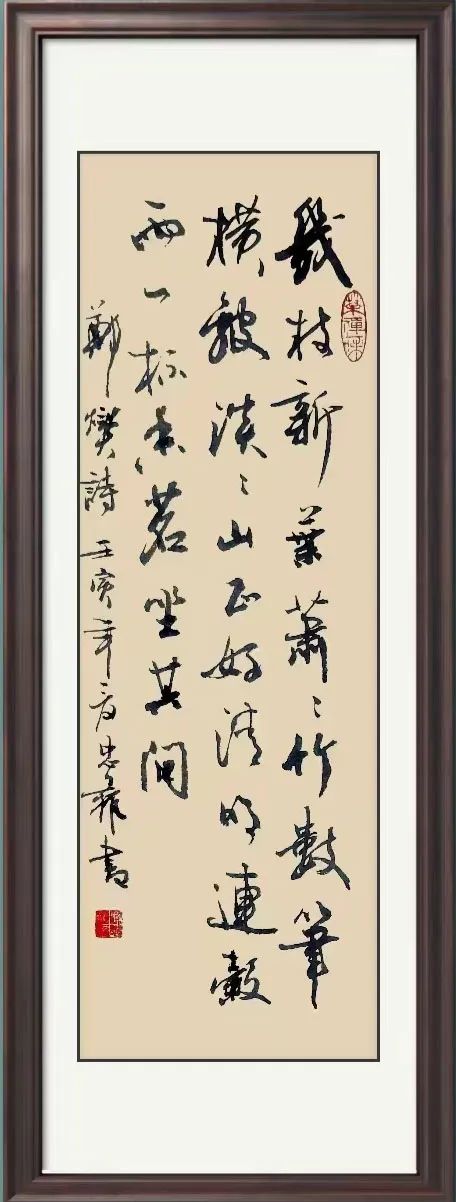 幾枝新葉蕭〻竹數筆
橫皴淡〻山正好清明連穀
雨一杯香茗坐其間
鄭燮詩 壬寅年 忠雍書